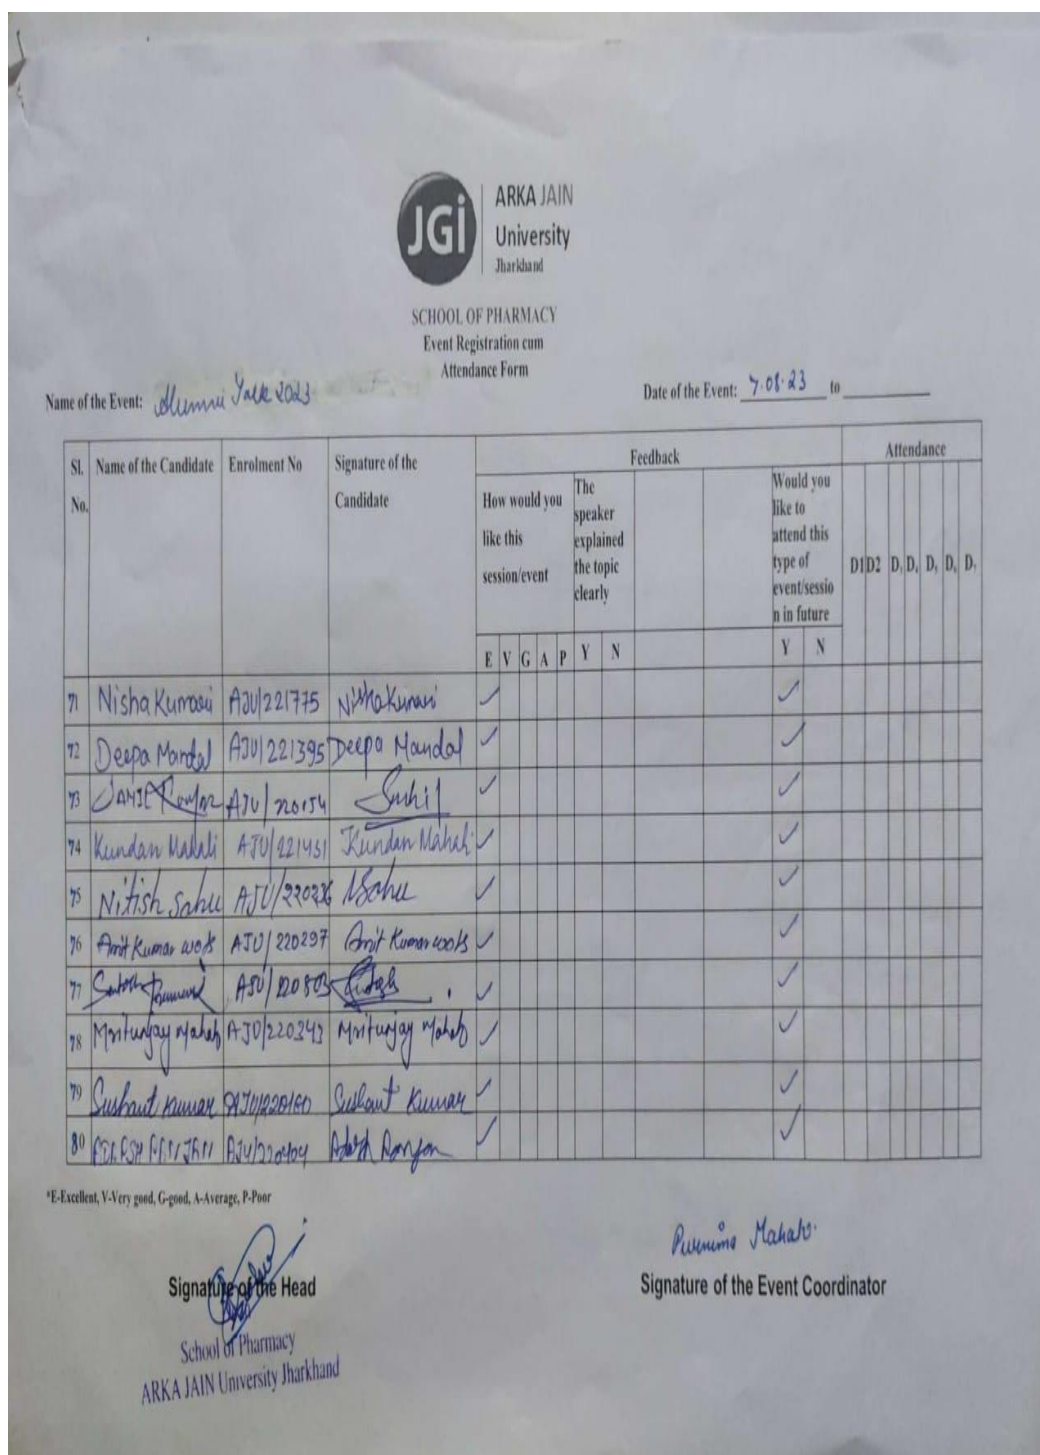 JGi
ARKA JAIN
University
Jharkhand
SCHOOL OF PHARMACY
Event Registration cum
Attendance Form
Name of the Event: Alumni Talk 2023
Date of the Event: 7.08.23 to
Sl. No. Name of the Candidate Enrolment No Signature of the Candidate Feedback Attendance
How would you like this session/event
The speaker explained the topic clearly
Would you like to attend this type of event/sessio n in future
D1 D2 D, D, D, D, D,
E V G A P Y N Y N
71 Nisha Kumari AJU/221775 Nisha Kumari ✓ ✓
72 Deepa Mandal AJU/221395 Deepa Mandal ✓ ✓
73 AJU/220154 ✓ ✓
74 Kundan Mahali AJU/221431 Kundan Mahali ✓ ✓
75 Nitish Sahu AJU/220236 NSahu ✓ ✓
76 Amit Kumar AJU/220297 Amit Kumar ✓ ✓
77 ✓ ✓
78 Mritunjay Mahato AJU/220343 Mritunjay Mahato ✓ ✓
79 Sushant Kumar AJU/220160 Sushant Kumar ✓ ✓
80 AJU/220404 Adarsh Ranjan ✓ ✓
*E-Excellent, V-Very good, G-good, A-Average, P-Poor
Purnima Mahato.
Signature of the Head
Signature of the Event Coordinator
School of Pharmacy
ARKA JAIN University Jharkhand